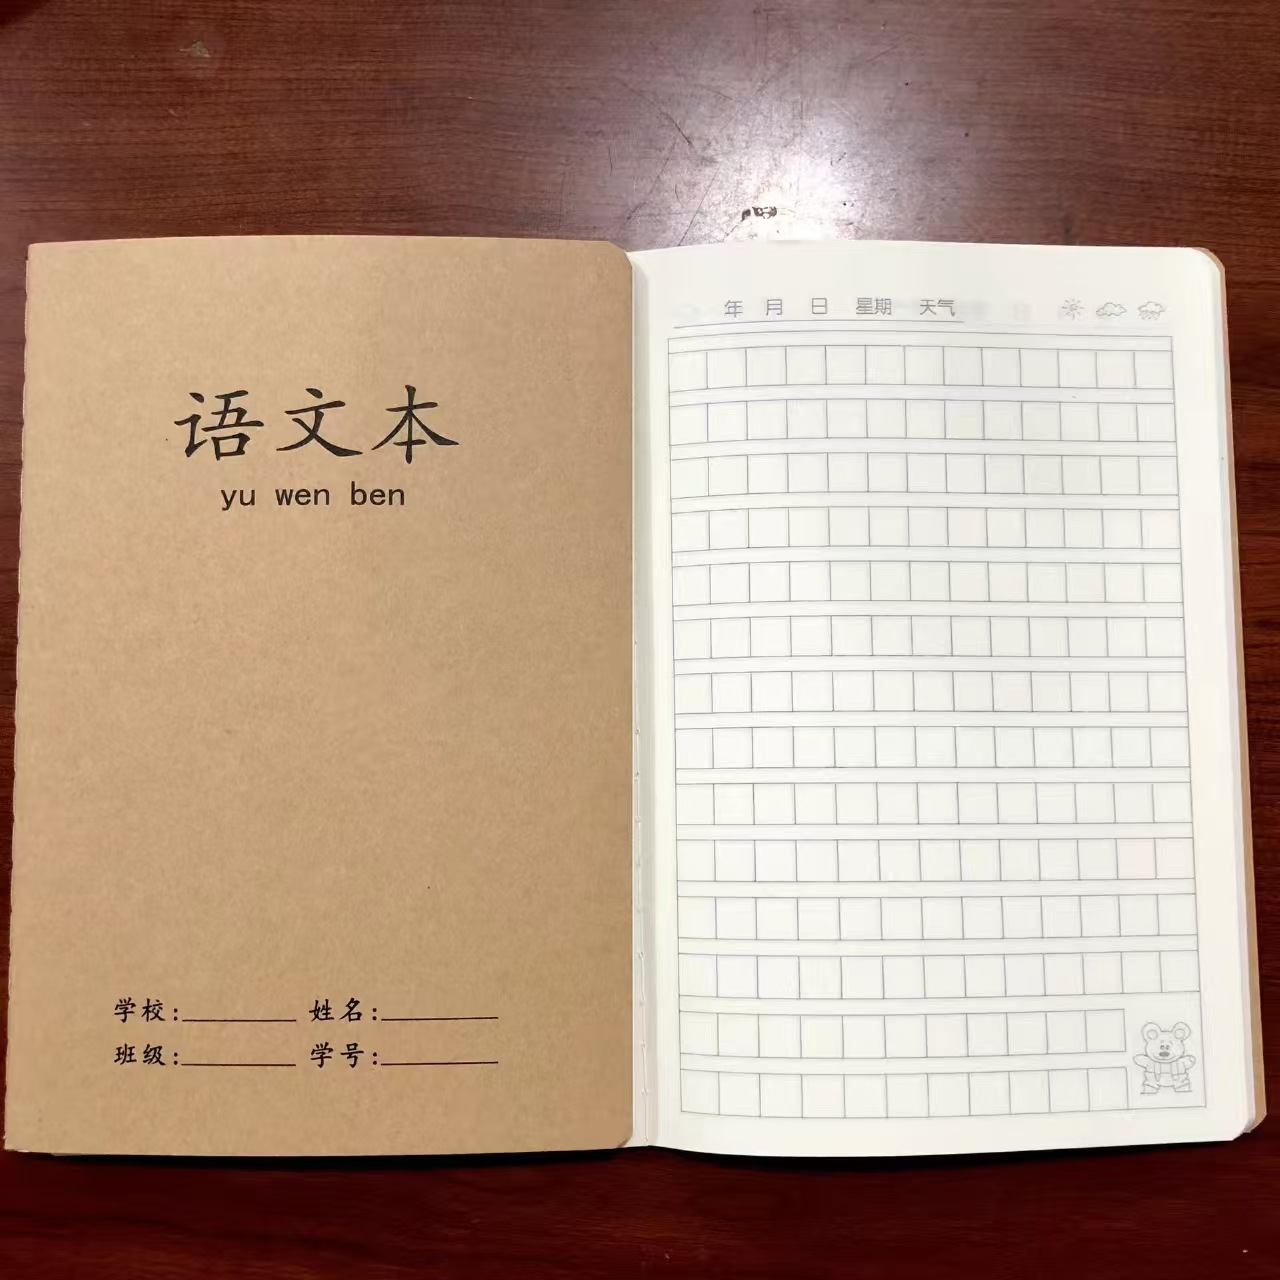 语文本
yu wen ben
学校:________ 姓名:________
班级:________ 学号:________
年 月 日 星期 天气